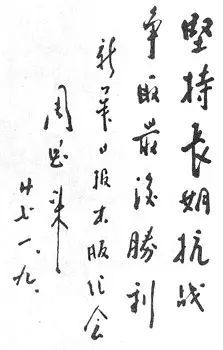 堅持長期抗战
争取最後勝利
新華日报出版纪念
周恩来
廿七.一.九.